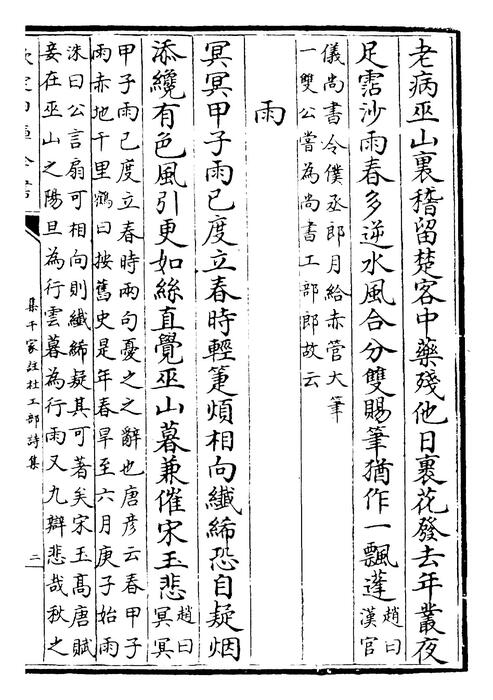 老病巫山裏稽留楚客中藥殘他日裹花發去年叢夜
足霑沙雨春多逆水風合分雙賜筆猶作一飄蓬趙曰漢官
儀尚書令僕丞郎月給赤管大筆
一雙公嘗為尚書工部郎故云
雨
冥冥甲子雨已度立春時輕箑煩相向纖絺恐自疑烟
添纔有色風引更如絲直覺巫山暮兼催宋玉悲趙曰冥冥
甲子雨已度立春時兩句憂之之辭也唐彦云春甲子
雨赤地千里鶴曰按舊史是年春旱至六月庚子始雨
洙曰公言扇可相向則纖絺疑其可著矣宋玉髙唐賦
妾在巫山之陽旦為行雲暮為行雨又九辯悲哉秋之
集千家註杜工部詩集
二